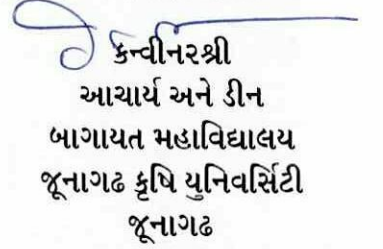 કન્વીનરશ્રી
આચાર્ય અને ડીન
બાગાયત મહાવિદ્યાલય
જૂનાગઢ કૃષિ યુનિવર્સિટી
જૂનાગઢ